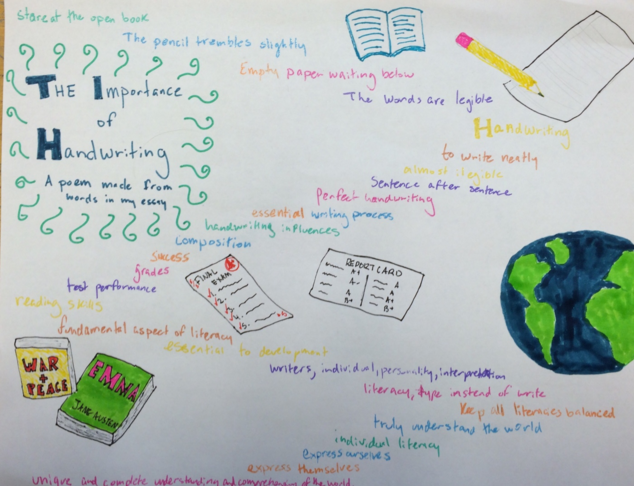 stare at the open book
The pencil trembles slightly
Empty paper waiting below
The words are legible
Handwriting
to write neatly
almost illegible
Sentence after sentence
Perfect handwriting
essential writing process
handwriting influences
composition
success
grades
test performance
reading skills
fundamental aspect of literacy
essential to development
writers, individual, personality, interpretation
literacy, type instead of write
Keep all literacies balanced
truly understand the world
individual literacy
express ourselves
express themselves
unique and complete understanding and comprehension of the world.
THE Importance
of
Handwriting
A poem made from
words in my essay
FINAL
EXAM
REPORT CARD
A+
A-
A
A
B+
A
B+
WAR
+
PEACE
EMMA
JANE AUSTEN